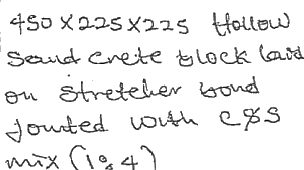 450 X 225 X 225 Hollow
Sand crete block laid
on stretcher bond
Jointed with C&S
mix (1:4)